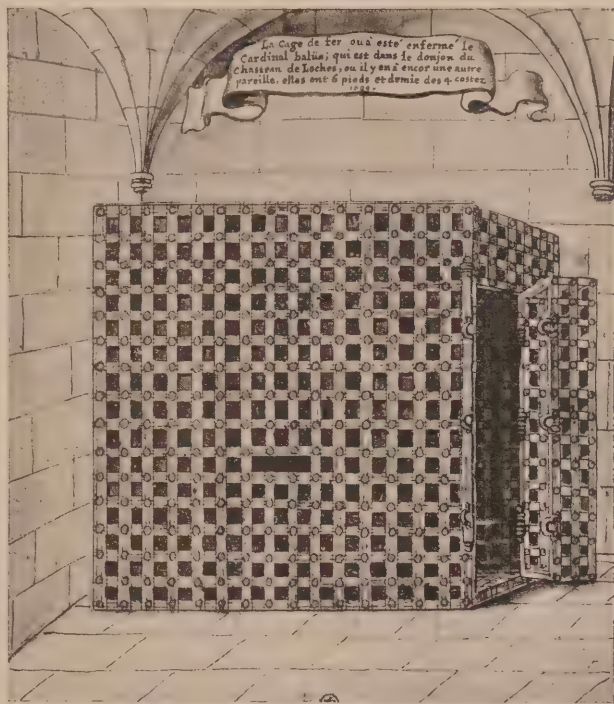 La Cage de fer ou à esté enfermé le
Cardinal balüe; qui est dans le donjon du
Chasteau de Loches, ou il y en à encor une autre
pareille. elles ont 6 pieds et demie des 4. costez